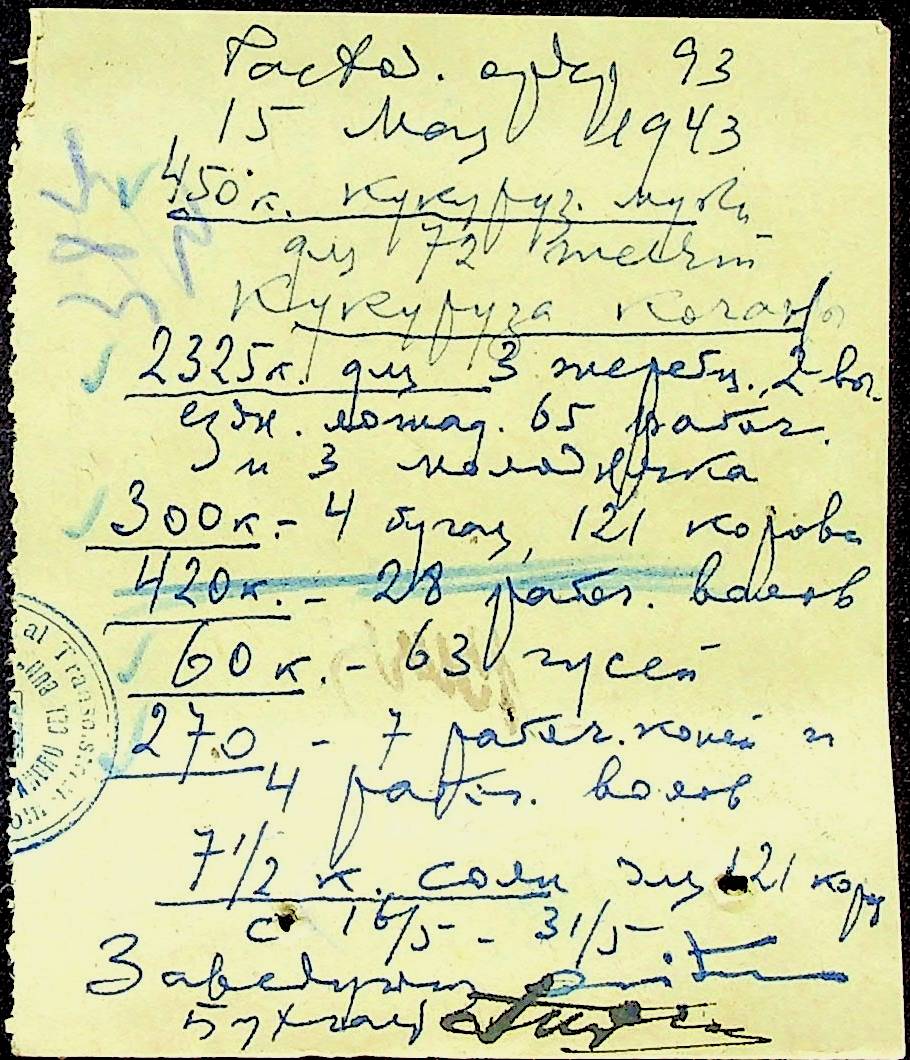 Расход. ордер 93
15 Мая 1943
450 к. кукуруз. муки
для 72
Кукуруза кочаны
2325 к. для 3 жеребц. 2 вы-
ездн. лошад. 65 рабоч.
и 3 молодняка
300 к. - 4 бугая, 121 корова
420 к. - 28 рабоч. волов
60 к. - 63 гусей
270 - 7 рабоч. коней и
4 рабоч. волов
7 1/2 к. соли для 121 кор
с 16/5 - 31/5
Заведующий
Бухгалт
al Transo